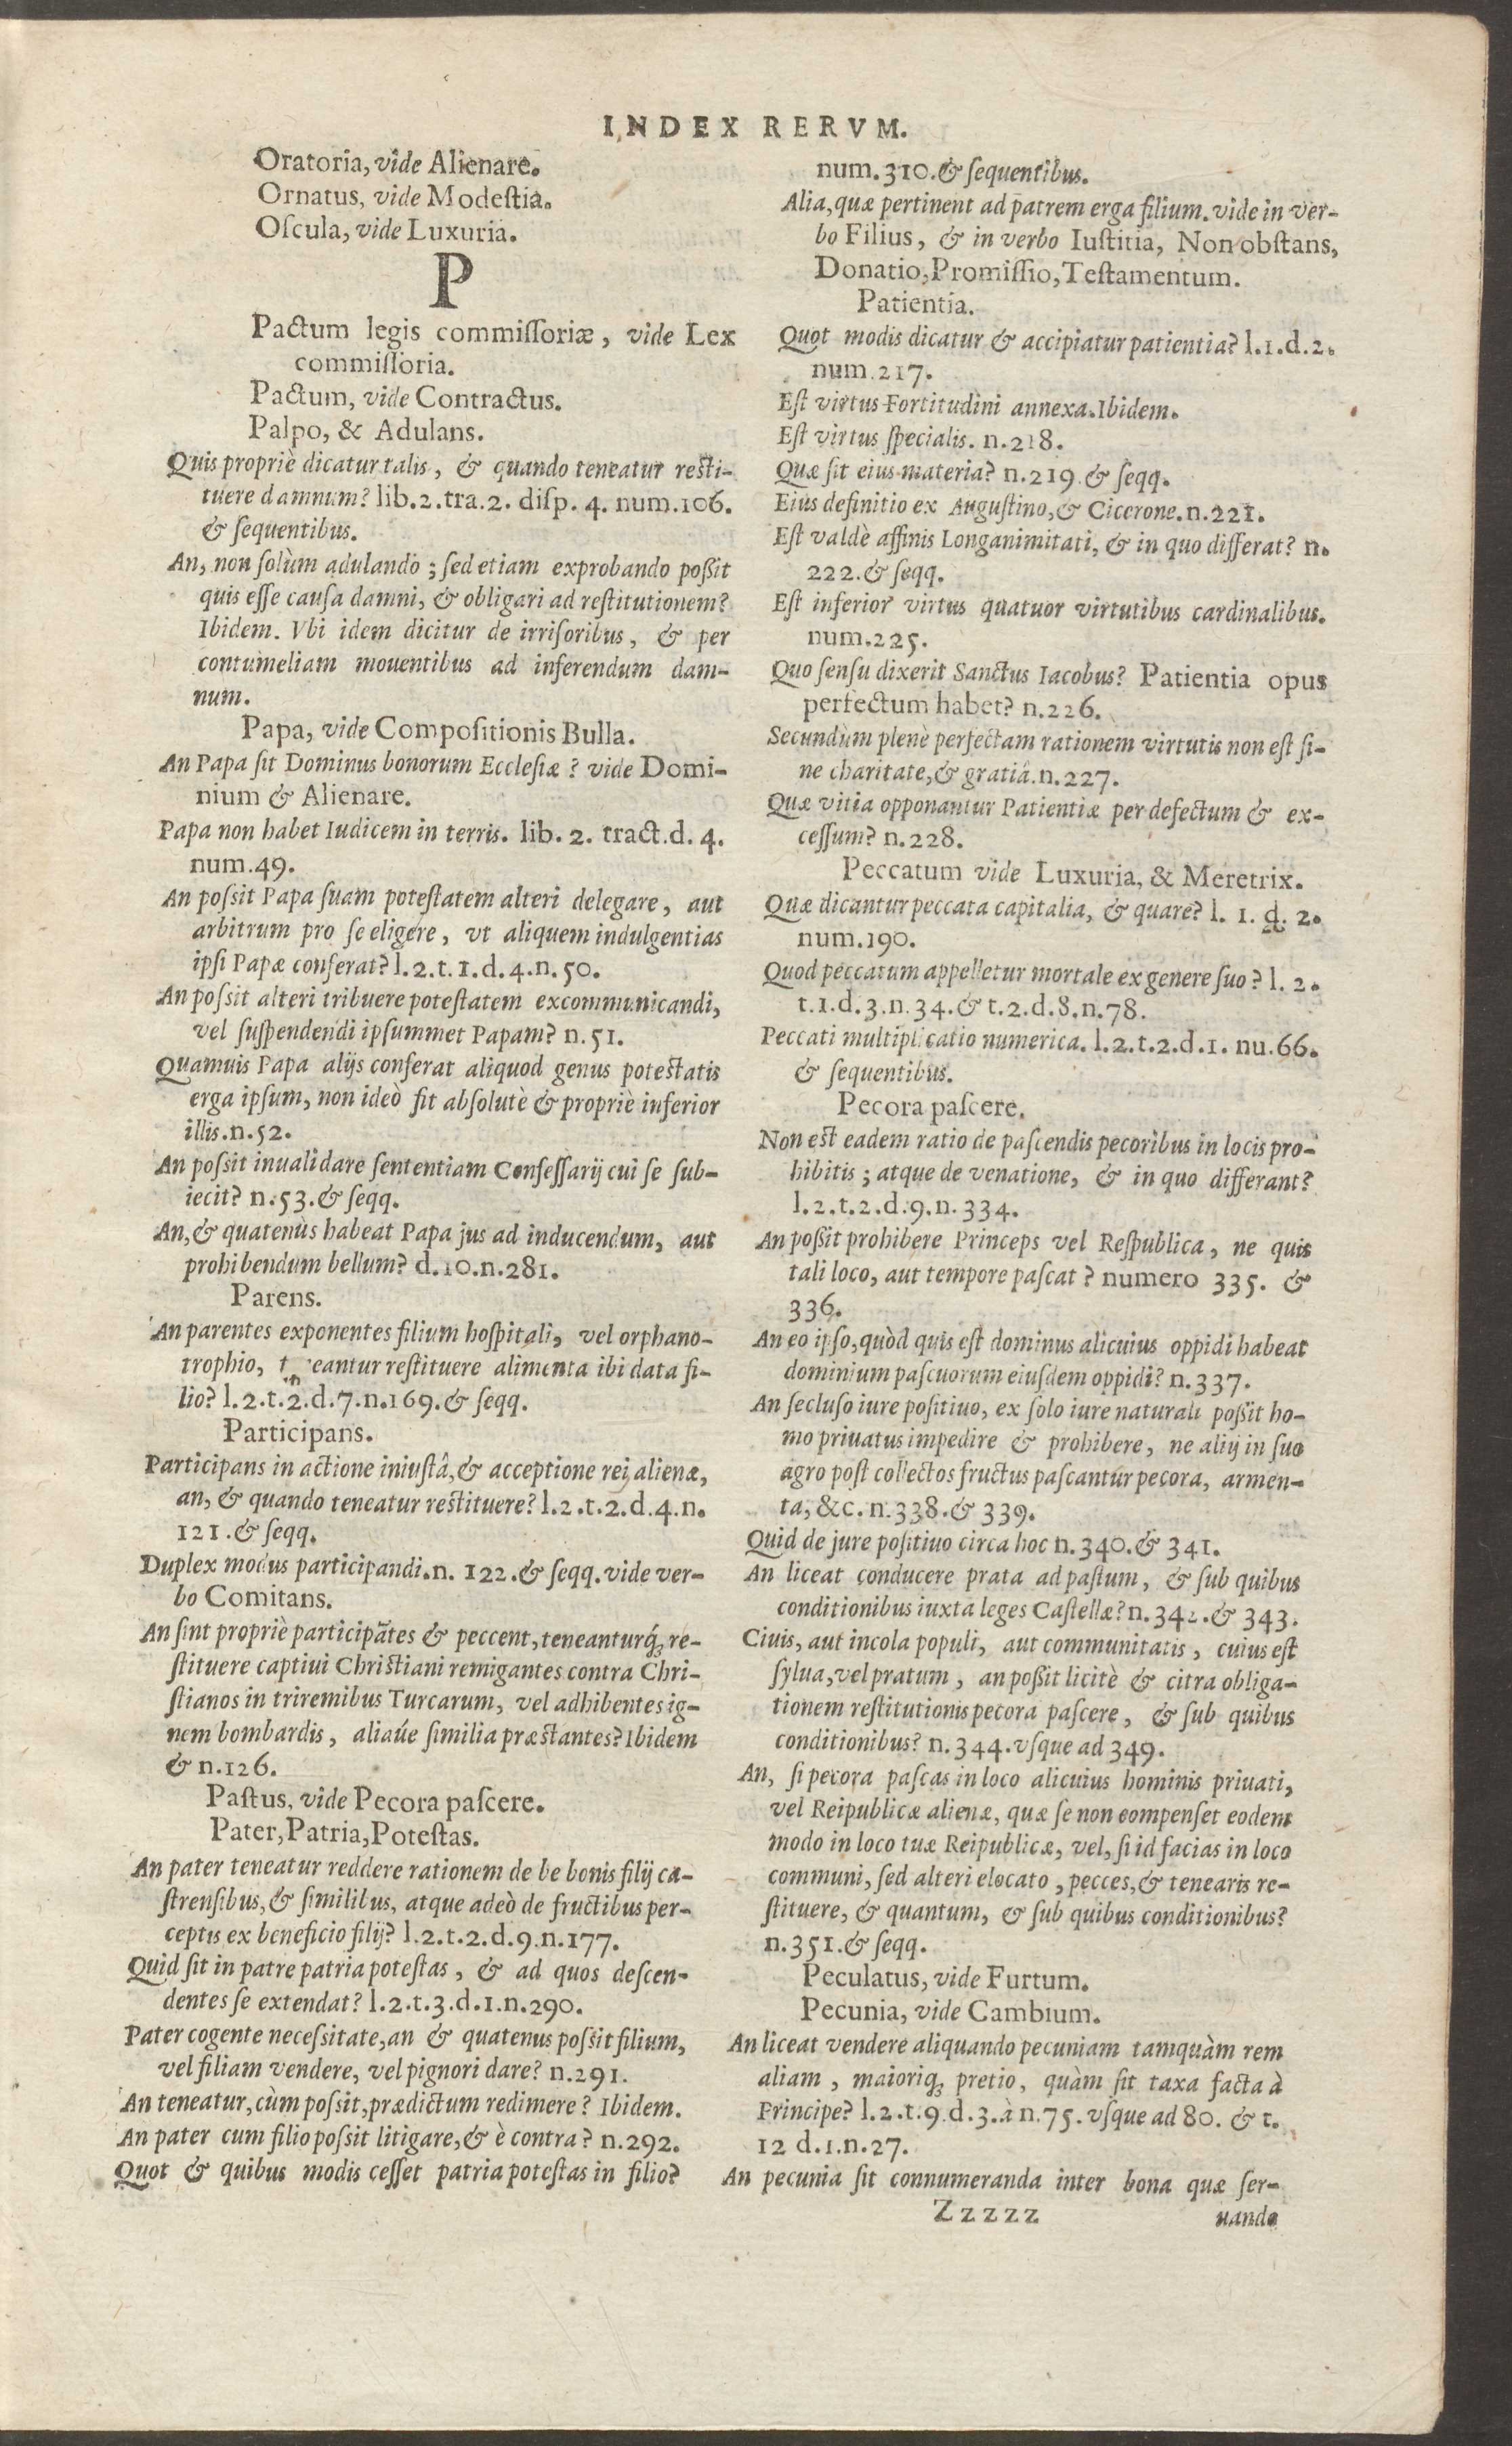 INDEX RERVM.
Oratoria, vide Alienare.
Ornatus, vide Modeſtia.
Oſcula, vide Luxuria.
P
Pactum legis commiſſoriæ, vide Lex
commiſſoria.
Pactum, vide Contractus.
Palpo, & Adulans.
Quis propriè dicatur talis, & quando teneatur reſti-
tuere damnum? lib.2.tra.2. diſp. 4. num.106.
& ſequentibus.
An, non ſolùm adulando; ſed etiam exprobando poßit
quis eſſe cauſa damni, & obligari ad reſtitutionem?
Ibidem. Vbi idem dicitur de irriſoribus, & per
contumeliam mouentibus ad inferendum dam-
num.
Papa, vide Compoſitionis Bulla.
An Papa ſit Dominus bonorum Eccleſiæ? vide Domi-
nium & Alienare.
Papa non habet Iudicem in terris. lib. 2. tract.d. 4.
num.49.
An poſsit Papa ſuam poteſtatem alteri delegare, aut
arbitrum pro ſe eligere, vt aliquem indulgentias
ipſi Papæ conferat? l.2.t.1.d.4.n.50.
An poſsit alteri tribuere poteſtatem excommunicandi,
vel ſuſpendendi ipſummet Papam? n.51.
Quamuis Papa alijs conferat aliquod genus poteſtatis
erga ipſum, non ideò fit abſolutè & propriè inferior
illis.n.52.
An poſsit inualidare ſententiam Confeſſarij cui ſe ſub-
iecit? n.53.& ſeqq.
An,& quatenùs habeat Papa jus ad inducendum, aut
prohibendum bellum? d.10.n.281.
Parens.
An parentes exponentes filium hoſpitali, vel orphano-
trophio, t eantur reſtituere alimenta ibi data fi-
lio? l.2.t.2.d.7.n.169.& ſeqq.
Participans.
Participans in actione iniuſtâ,& acceptione rei alienæ,
an, & quando teneatur reſtituere? l.2.t.2.d.4.n.
121.& ſeqq.
Duplex modus participandi.n. 122.& ſeqq. vide ver-
bo Comitans.
An ſint propriè participātes & peccent, teneanturq́; re-
ſtituere captiui Chriſtiani remigantes contra Chri-
ſtianos in triremibus Turcarum, vel adhibentes ig-
nem bombardis, aliaúe ſimilia præſtantes? Ibidem
& n.126.
Paſtus, vide Pecora paſcere.
Pater, Patria, Poteſtas.
An pater teneatur reddere rationem de be bonis filij ca-
ſtrenſibus,& ſimilibus, atque adeò de fructibus per-
ceptis ex beneficio filij? l.2.t.2.d.9.n.177.
Quid ſit in patre patria poteſtas, & ad quos deſcen-
dentes ſe extendat? l.2.t.3.d.1.n.290.
Pater cogente neceſsitate,an & quatenus poſsit filium,
vel filiam vendere, vel pignori dare? n.291.
An teneatur, cùm poſsit, prædictum redimere? Ibidem.
An pater cum filio poſsit litigare,& è contra? n.292.
Quot & quibus modis ceſſet patria poteſtas in filio?
num.310.& ſequentibus.
Alia, quæ pertinent ad patrem erga filium. vide in ver-
bo Filius, & in verbo Iuſtitia, Non obſtans,
Donatio, Promiſſio, Teſtamentum.
Patientia.
Quot modis dicatur & accipiatur patientia? l.1.d.2.
num.217.
Eſt virtus Fortitudini annexa. Ibidem.
Eſt virtus ſpecialis. n.218.
Quæ ſit eius materia? n.219.& ſeqq.
Eius definitio ex Auguſtino,& Cicerone.n.221.
Eſt valdè affinis Longanimitati, & in quo differat? n.
222.& ſeqq.
Eſt inferior virtus quatuor virtutibus cardinalibus.
num.225.
Quo ſenſu dixerit Sanctus Iacobus? Patientia opus
perfectum habet? n.226.
Secundùm plenè perfectam rationem virtutis non eſt ſi-
ne charitate,& gratiâ.n.227.
Quæ vitia opponantur Patientiæ per defectum & ex-
ceſſum? n.228.
Peccatum vide Luxuria, & Meretrix.
Quæ dicantur peccata capitalia, & quare? l. 1. d. 2.
num.190.
Quod peccatum appelletur mortale ex genere ſuo? l. 2.
t.1.d.3.n.34.& t.2.d.8.n.78.
Peccati multiplicatio numerica. l.2.t.2.d.1. nu.66.
& ſequentibus.
Pecora paſcere.
Non eſt eadem ratio de paſcendis pecoribus in locis pro-
hibitis; atque de venatione, & in quo differant?
l.2.t.2.d.9.n.334.
An poßit prohibere Princeps vel Reſpublica, ne quis
tali loco, aut tempore paſcat? numero 335. &
336.
An eo ipſo, quòd quis eſt dominus alicuius oppidi habeat
dominium paſcuorum eiuſdem oppidi? n.337.
An ſecluſo iure poſitiuo, ex ſolo iure naturali poßit ho-
mo priuatus impedire & prohibere, ne alij in ſuo
agro poſt collectos fructus paſcantur pecora, armen-
ta, &c. n.338.& 339.
Quid de jure poſitiuo circa hoc n.340.& 341.
An liceat conducere prata ad paſtum, & ſub quibus
conditionibus iuxta leges Caſtellæ? n.342.& 343.
Ciuis, aut incola populi, aut communitatis, cuius eſt
ſylua, vel pratum, an poßit licitè & citra obliga-
tionem reſtitutionis pecora paſcere, & ſub quibus
conditionibus? n.344.vſque ad 349.
An, ſi pecora paſcas in loco alicuius hominis priuati,
vel Reipublicæ alienæ, quæ ſe non compenſet eodem
modo in loco tuæ Reipublicæ, vel, ſi id facias in loco
communi, ſed alteri elocato, pecces,& tenearis re-
ſtituere, & quantum, & ſub quibus conditionibus?
n.351.& ſeqq.
Peculatus, vide Furtum.
Pecunia, vide Cambium.
An liceat vendere aliquando pecuniam tamquàm rem
aliam, maioriq; pretio, quàm ſit taxa facta à
Principe? l.2.t.9.d.3.à n.75.vſque ad 80. & t.
12 d.1.n.27.
An pecunia ſit connumeranda inter bona quæ ſer-
Zzzzz uando